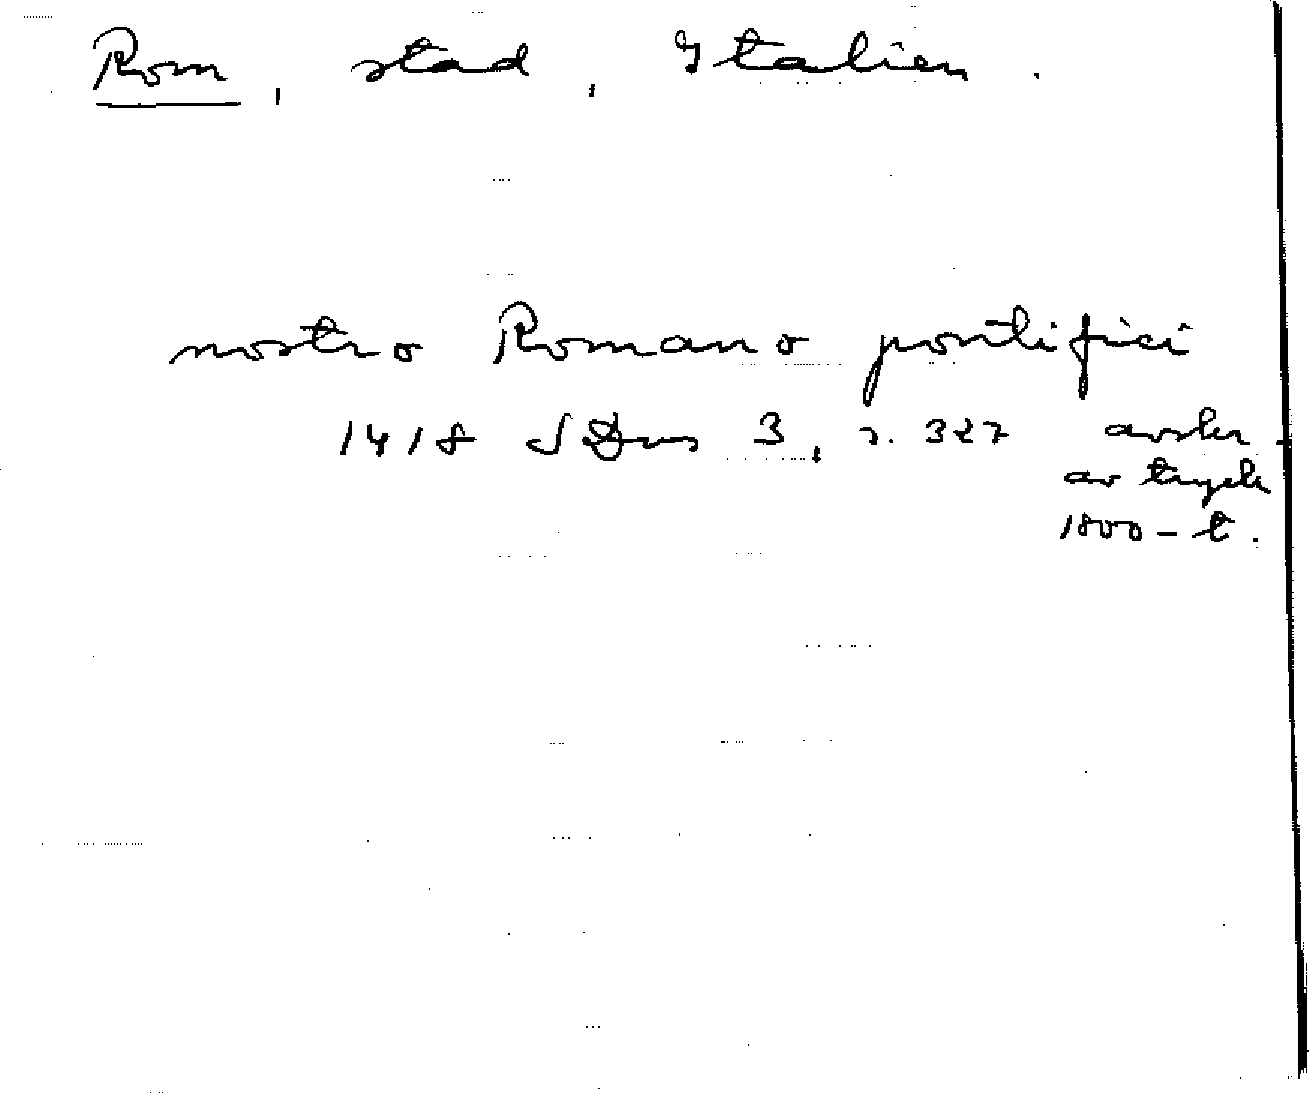 Rom, stad, Italien.
nostro Romano pontifici
1418 SDns 3, s. 327 avskr
av tryck
1800-t.